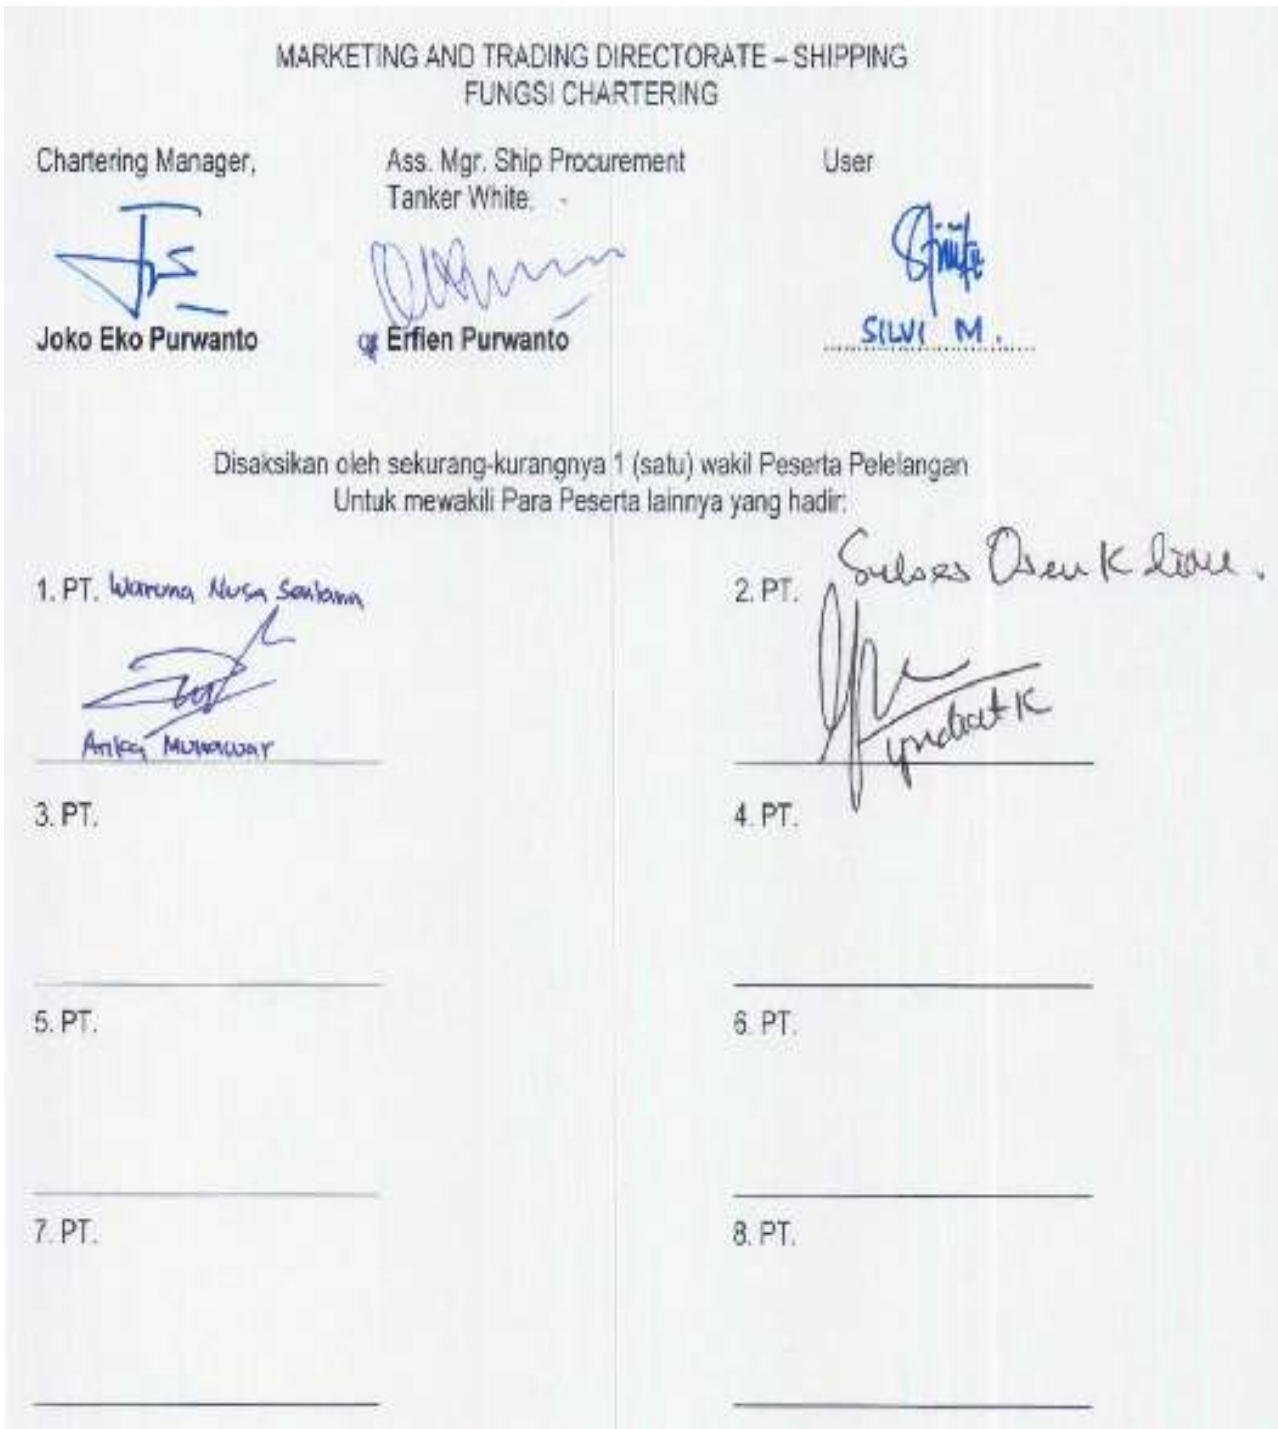 MARKETING AND TRADING DIRECTORATE – SHIPPING
FUNGSI CHARTERING
Chartering Manager,
Ass. Mgr. Ship Procurement
Tanker White.
User
Joko Eko Purwanto
Erfien Purwanto
SILVI M.
Disaksikan oleh sekurang-kurangnya 1 (satu) wakil Peserta Pelelangan
Untuk mewakili Para Peserta lainnya yang hadir:
1. PT. Waruna Nusa Sentana
Munawar
2. PT. Sukses Osean K
3. PT.
4. PT.
5. PT.
6. PT.
7. PT.
8. PT.